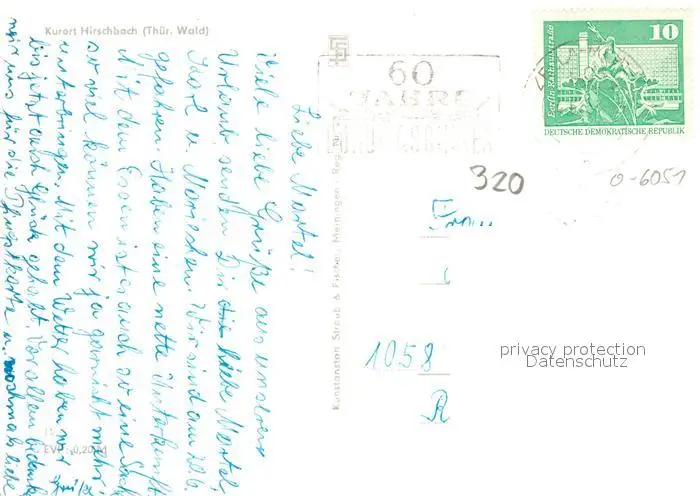 Kurort Hirschbach (Thür. Wald)
Liebe Martel!
Viele liebe Grüße aus unserem
Urlaub senden Dir die liebe Martel
u. Mariechen. Wir sind am 20.6.
gefahren. Haben eine nette Unterkunft
Mit dem Essen ist es auch so eine
so viel können wir ja gar nicht mehr
unterbringen. Mit dem Wetter haben wir
bis jetzt auch Glück gehabt. Vor allem
wir uns für die u. nochmals liebe
EVP: 0,20 M
Kunstanstalt Straub & Fischer, Meiningen
60
JAHRE
10
Berlin, Rathausstraße
DEUTSCHE DEMOKRATISCHE REPUBLIK
320
0-6051
Frau
1058
R
privacy protection
Datenschutz